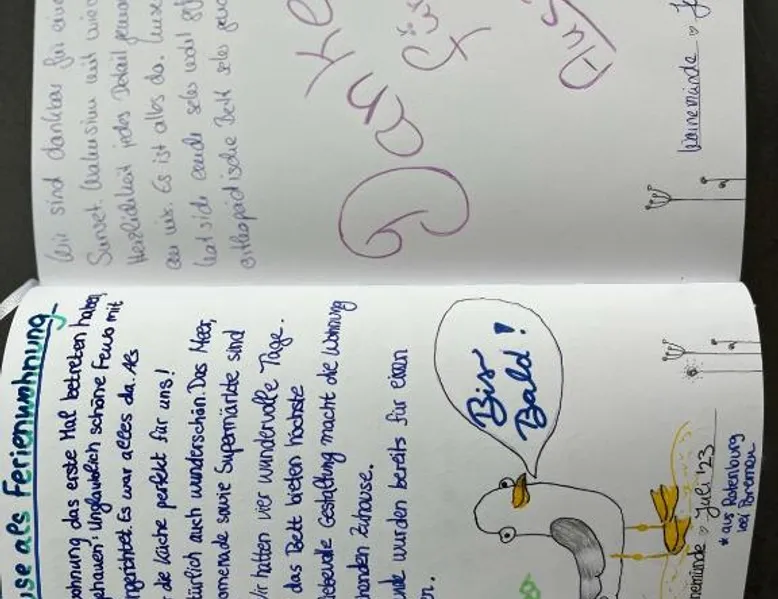 use als Ferienwohnung
ohnung das erste Mal betreten haben,
gehauen: Unglaublich schöne Fewo mit
ngerichtet. Es war alles da. Als
die Küche perfekt für uns!
türlich auch wunderschön. Das Meer,
omenade sowie Supermärkte sind
Wir hatten vier wundervolle Tage.
das Bett bieten höchste
liebevolle Gestaltung macht die Wohnung
Zuhause.
wurden bereits für einen
er.
Bis
Bald!
nemünde ♡ Juli '23
* aus Rotenburg
bei Bremen
Wir sind dankbar für
Sunset.
Herzlichkeit jedes Detail
Es ist alles da.
hat sich auch sehr wohl
orthopädische Bett sehr
Danke
für
Warnemünde ♡ J